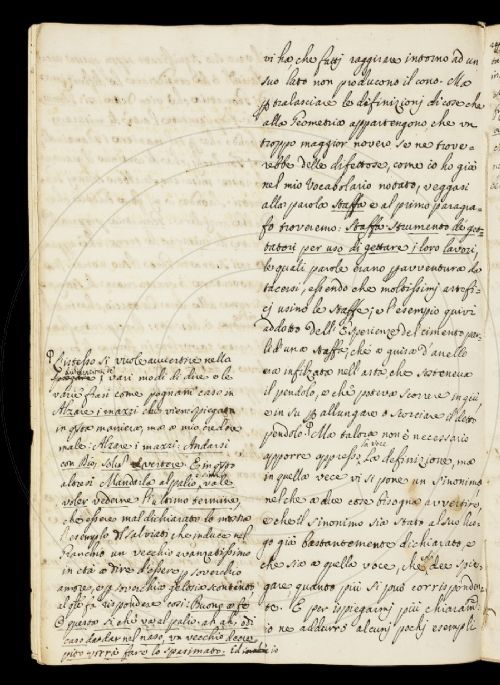 vi ha, che fatti raggirare intorno ad un
suo lato non producono il cono. Ma
tralasciare le definizionj di cose che
alla Geometria appartengono che un
troppo maggior novero se ne trove-
rebbe delle difettose, come io ho già
nel mio Vocabolario notato, veggasi
alla parola Staffa e al primo paragra-
fo troveremo: Staffa Strumento de get-
tatori per uso di gettare i loro lavori,
le quali parole erano da
tacersi, essendo che moltissimj artefi-
ci usino le Staffe; e l'esempio quivi
addotto dell'Esperienze del cimento par-
li d'una Staffa, che a guisa d'anello
era infilzata nell'asta che sosteneva
il pendolo, e che poteva scorrere in giù
e in su allungare o scorciare il detto
pendolo. Ma talora non è necessario
apporre appresso la voce definizione, ma
in quella vece vi si pone un Sinonimo
nel che a due cose bisogna avvertire,
e che il sinonimo sia stato al suo luo-
go già bastantemente dichiarato, e
che sia a quella voce, che si dee spie-
gare quanto più si può corrisponden-
te. E per ispiegarmi più chiaram.
io ne addurrò alcunj pochi esempli
L'istesso si vuole avvertire nello
i varj modi di dire o le
varie frasi come pognam caso in
Alzare i mazzi che vien spiegata
in questa maniera, ma a mio credere
male: Alzare i mazzi: Andarsi
con Dio,
altresi Mandarla al palio, vale
voler vederne l'ultimo termine,
che essere mal dichiarato lo mostra
l'esemplo del Salviati che induce nel
Granchio un vecchio avanzatissimo
in età a dire d'essere soverchio
amore, e soverchia gelosia
al che fa rispondere così: Buono a fe
E questo si che va al palio. ah, ah,
caso da dar nel naso, un vecchio
vorrà fare lo spasimato: